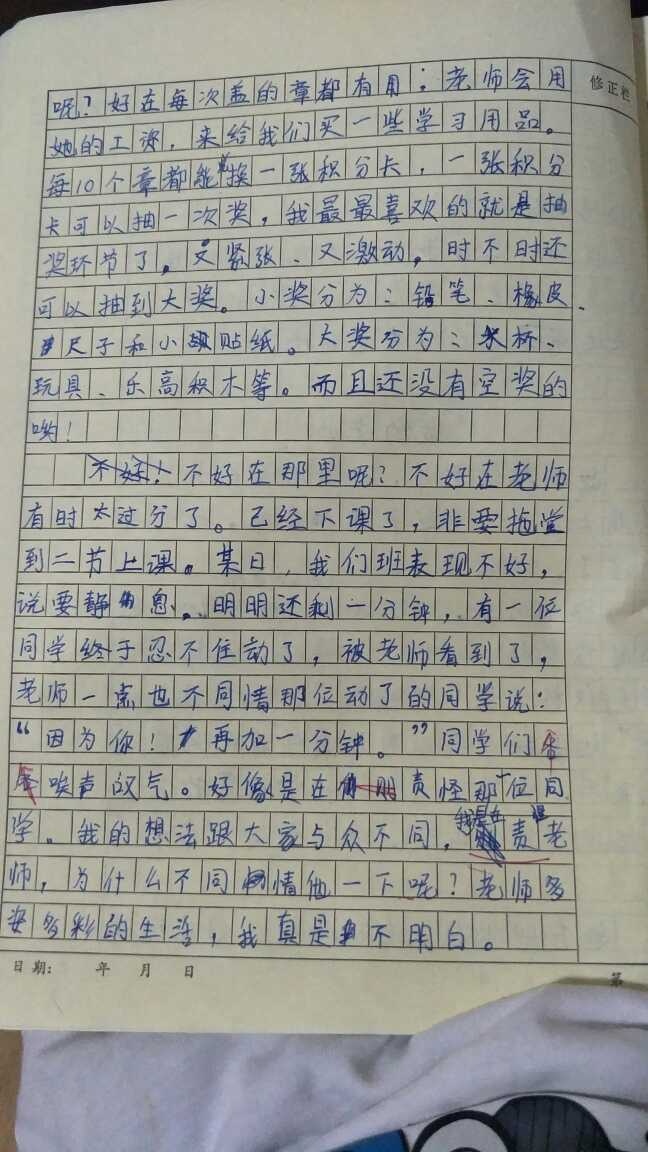 修正栏
呢？好在每次盖的章都有用：老师会用
她的工资，来给我们买一些学习用品。
每10个章都能换一张积分卡，一张积分
卡可以抽一次奖，我最最喜欢的就是抽
奖环节了。又紧张、又激动，时不时还
可以抽到大奖。小奖分为：铅笔、橡皮、
尺子和小贴纸。大奖分为：水杯、
玩具、乐高积木等。而且还没有空奖的
哟！
不好！不好在那里呢？不好在老师
有时太过分了。已经下课了，非要拖堂
到二节上课。某日，我们班表现不好，
说要静息，明明还剩一分钟，有一位
同学终于忍不住动了，被老师看到了，
老师一点也不同情那位动了的同学说：
“因为你！再加一分钟。”同学们
唉声叹气。好像是在责怪那一位同
学。我的想法跟大家与众不同，我是在责怪老
师，为什么不同情他一下呢？老师多
姿多彩的生活，我真是不明白。
日期： 年 月 日
第